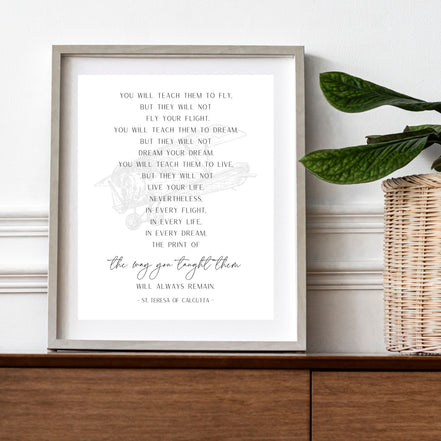 YOU WILL TEACH THEM TO FLY,
BUT THEY WILL NOT
FLY YOUR FLIGHT.
YOU WILL TEACH THEM TO DREAM,
BUT THEY WILL NOT
DREAM YOUR DREAM.
YOU WILL TEACH THEM TO LIVE,
BUT THEY WILL NOT
LIVE YOUR LIFE.
NEVERTHELESS,
IN EVERY FLIGHT,
IN EVERY LIFE,
IN EVERY DREAM,
THE PRINT OF
the way you taught them
WILL ALWAYS REMAIN.
- ST. TERESA OF CALCUTTA -